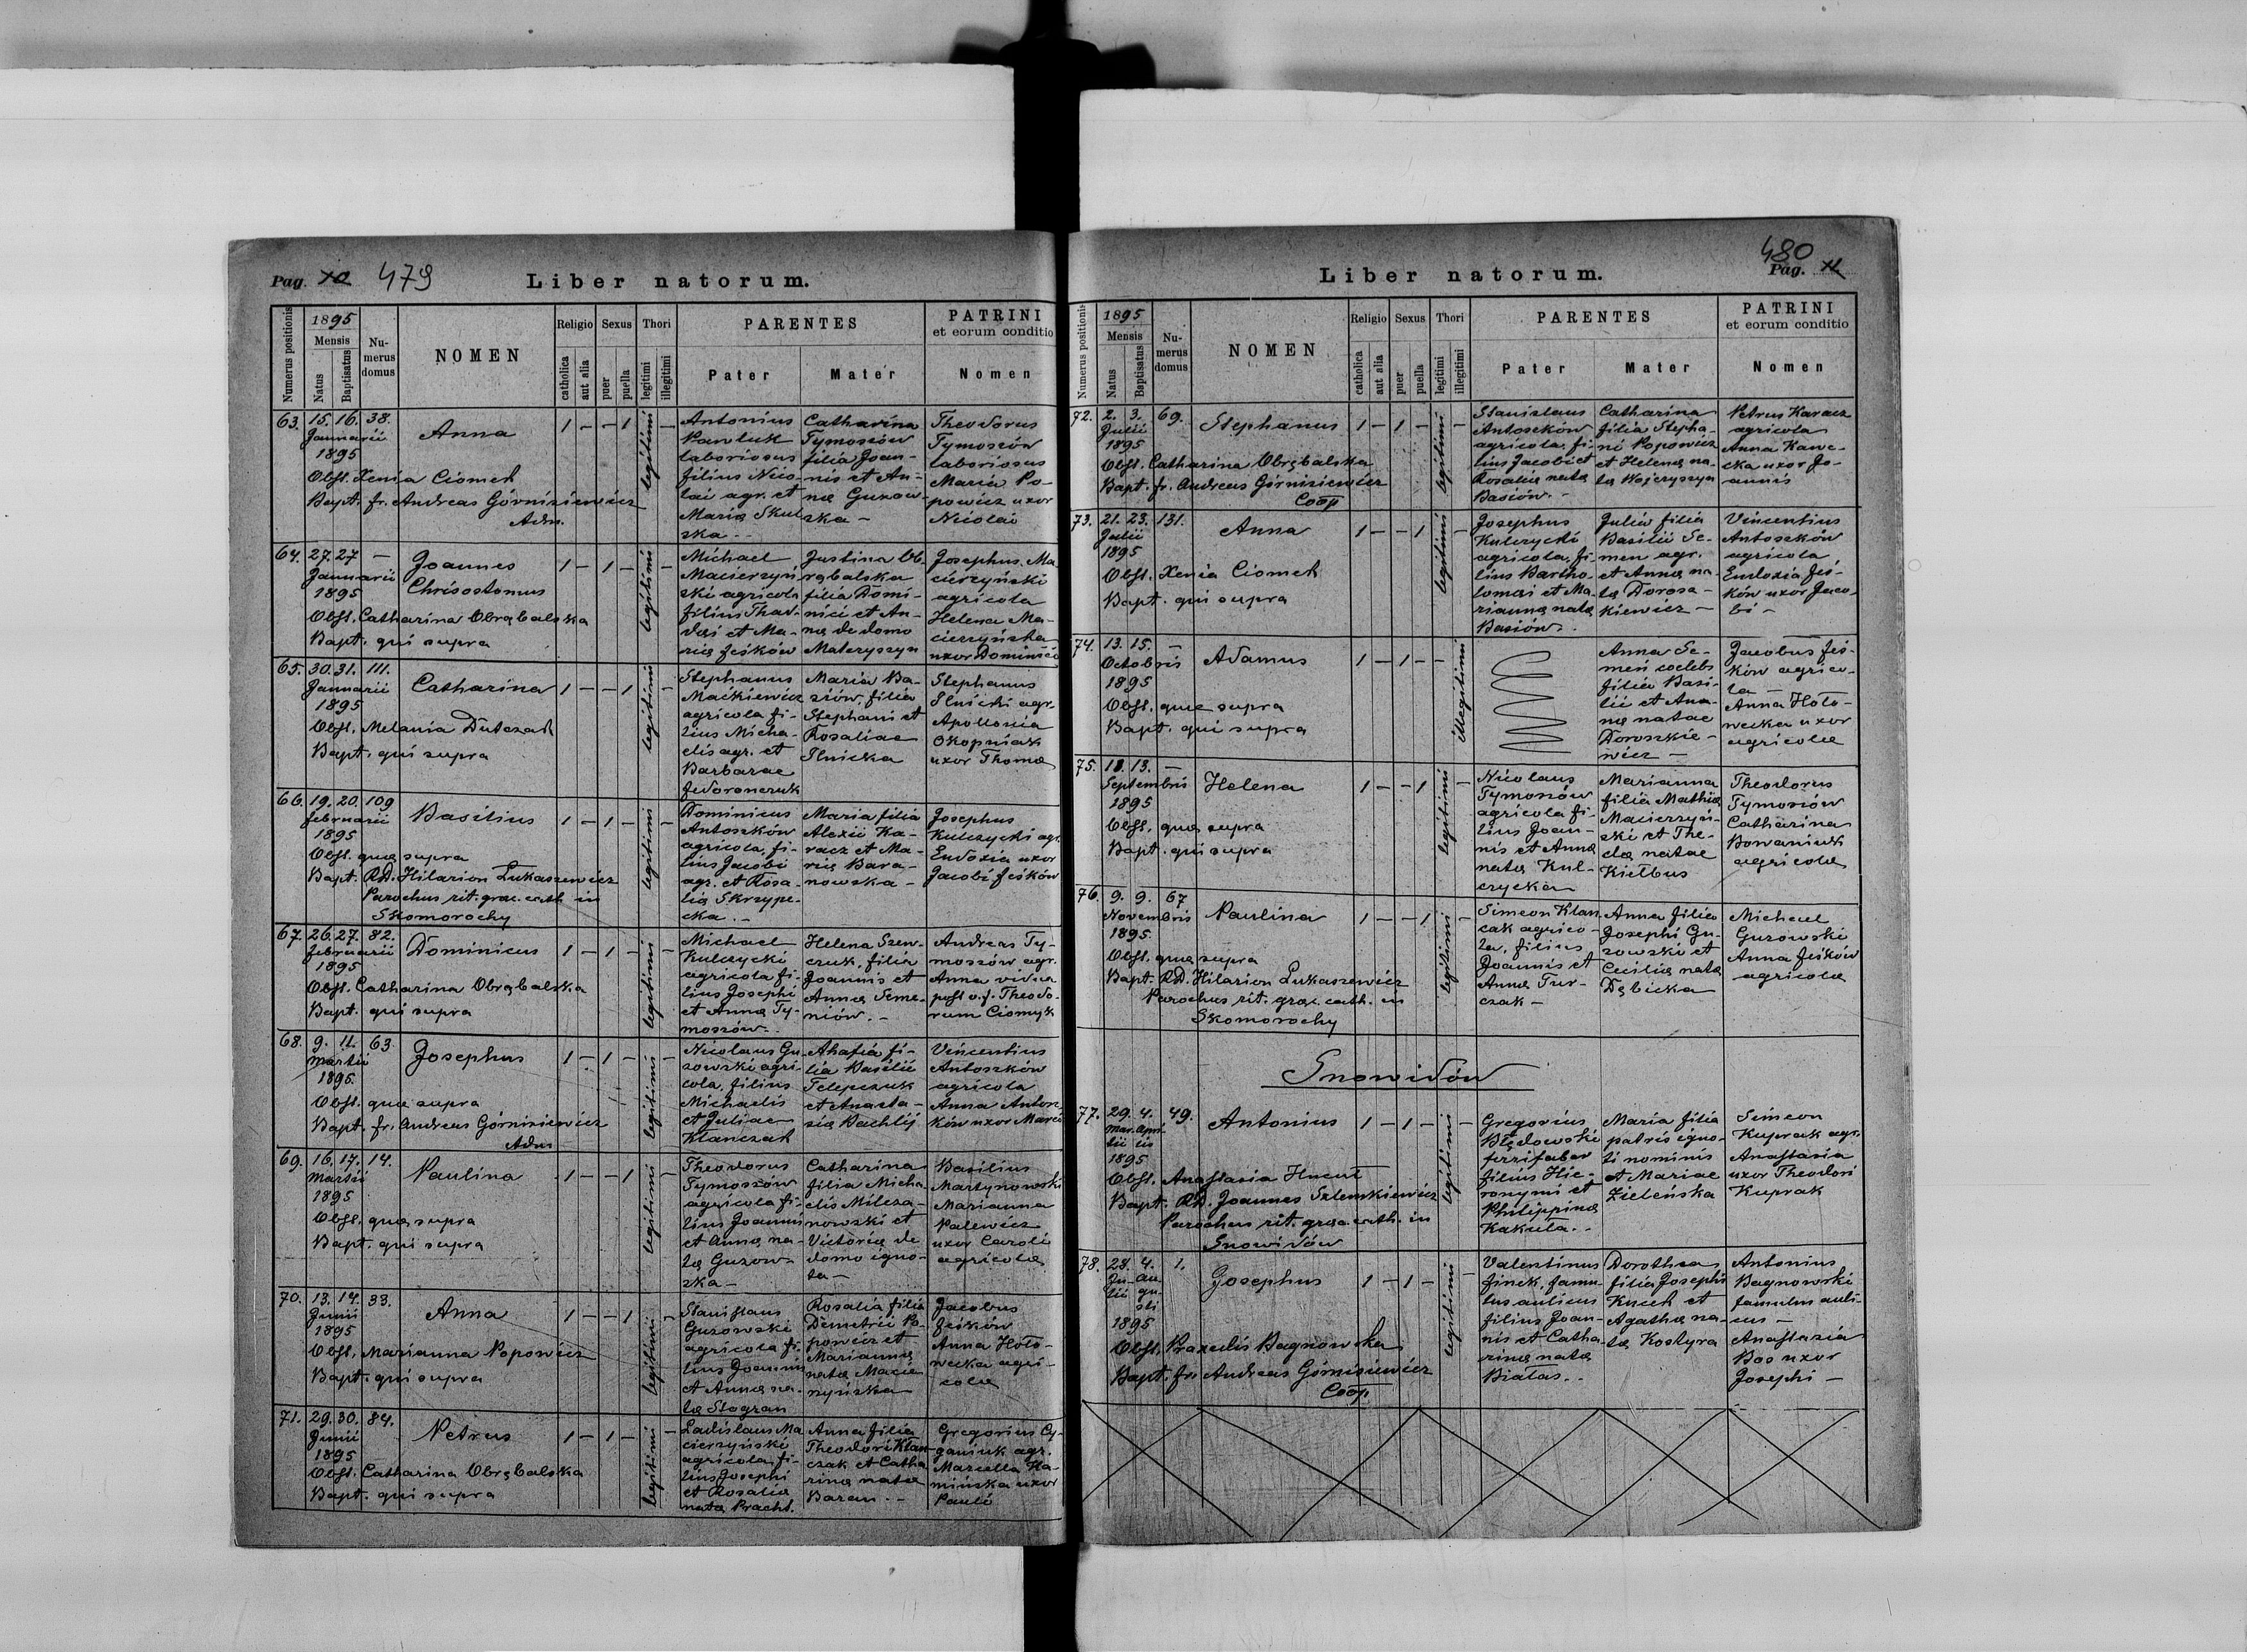 Pag. 479
Liber natorum.
Numerus positionis
1895
Mensis
Natus
Baptisatus
Nu-
merus
domus
NOMEN
Religio
catholica
aut alia
Sexus
puer
puella
Thori
legitimi
illegitimi
PARENTES
Pater
Mater
PATRINI
et eorum conditio
Nomen
63. 15. 16. 38.
Januarii
1895
Anna
1 – – 1 legitimi –
Obst. Xenia Ciomek
Bapt. fr. Andreas Górnisiewicz
Adm.
Antonius
Pawluk
laboriosus
filius Nico-
lai agr. et
Mariæ Skul
ska –
Catharina
Tymoszów
filia Joan-
nis et An-
næ Guzow
ska –
Theodorus
Tymoszów
laboriosus
Maria Po-
powicz uxor
Nicolai
64. 27. 27 –
Januarii
1895
Joannes
Chrisostomus
1 – 1 – legitimi –
Obst. Catharina Obrąbalska
Bapt. qui supra
Michael
Macierzyń
ski agricola
filius Thad-
dæi et Ma-
riæ Feśków
Justina Ob-
rąbalska
filia Domi-
nici et An-
næ de domo
Materyszyn
Josephus Ma
cierzyński
agricola
Helena Ma-
cierzyńska
uxor Dominici
65. 30. 31. 111.
Januarii
1895
Catharina
1 – – 1 legitimi –
Obst. Melania Dutczak
Bapt. qui supra
Stephanus
Maćkiewicz
agricola fi-
lius Micha-
elis agr. et
Barbarae
Fedoronczuk
Maria Ba-
siów, filia
Stephani et
Rosaliae
Ilnicka
Stephanus
Ilnicki agr.
Apollonia
Okopniak
uxor Thomæ
66. 19. 20. 109
Februarii
1895
Basilius
1 – 1 – legitimi –
Obst. quæ supra
Bapt. RD. Hilarion Łukaszewicz
Parochus rit. græc. cath. in
Skomorochy
Dominicus
Antoszków
agricola, fi-
lius Jacobi
agr. et Rosa-
liæ Skrzype-
cka. –
Maria filia
Alexii Ka-
racz et Ma-
riæ Bara-
nowska –
Josephus
Kulczycki agr.
Eudoxia uxor
Jacobi Feśków
67. 26. 27. 82.
Februarii
1895
Dominicus
1 – 1 – legitimi –
Obst. Catharina Obrąbalska
Bapt. qui supra
Michael
Kulczycki
agricola fi-
lius Josephi
et Annæ Ty-
moszów.
Helena Szew-
czuk, filia
Joannis et
Annæ Seme-
niów. –
Andreas Ty-
moszów agr.
Anna vidua
post o. f. Theodo-
rum Ciomyk
68. 9. 11. 63.
Martii
1895.
Josephus
1 – 1 – legitimi –
Obst. quæ supra
Bapt. fr. Andreas Górnisiewicz
Adm
Nicolaus Gu-
zowski agri-
cola, filius
Michaelis
et Juliae
Klanczak
Ahafia fi-
lia Basilii
Telepczuk
et Anasta-
siæ Bachlij
Vincentius
Antoszków
agricola
Anna Antosz
ków uxor Marci
69. 16. 17. 14.
Martii
1895
Paulina
1 – – 1 legitimi –
Obst. quæ supra
Bapt. qui supra
Theodorus
Tymoszów
agricola fi-
lius Joannis
et Annæ na-
tæ Guzow-
ska –
Catharina
filia Micha-
elis Milcza-
nowski et
Victoriæ de
domo igno-
ta –
Basilius
Martynowski
Marianna
Palewicz
uxor Caroli
agricolæ
70. 13. 14. 33.
Junii
1895
Anna
1 – – 1 legitimi –
Obst. Marianna Popowicz
Bapt. qui supra
Stanislaus
Guzowski
agricola fi-
lius Joannis
et Annæ na-
tæ Stogran
Rosalia filia
Demetrii Po-
powicz et
Mariannæ
natæ Macie
rzyńska
Jacobus
Feśków
Anna Hoło-
wecka agri-
colæ
71. 29. 30. 84.
Junii
1895
Petrus
1 – 1 – legitimi –
Obst. Catharina Obrąbalska
Bapt. qui supra
Ladislaus Ma
cierzyński
agricola, fi-
lius Josephi
et Rosaliæ
natæ Pracht.
Anna filia
Theodori Klan-
czak et Catha
rinæ natæ
Baran. –
Gregorius Cy-
ganiuk agr.
Marcella Ka-
mińska uxor
Pauli
480
Pag.
Liber natorum.
Numerus positionis
1895
Mensis
Natus
Baptisatus
Nu-
merus
domus
NOMEN
Religio
catholica
aut alia
Sexus
puer
puella
Thori
legitimi
illegitimi
PARENTES
Pater
Mater
PATRINI
et eorum conditio
Nomen
72. 2. 3. 69.
Julii
1895
Stephanus
1 – 1 – legitimi –
Obst. Catharina Obrąbalska
Bapt. fr. Andreas Górnisiewicz
Coop
Stanislaus
Antoszków
agricola, fi-
lius Jacobi et
Rosaliæ natæ
Basiów. –
Catharina
filia Stepha-
ni Popowicz
et Helenæ na-
tæ Wojcyszyn
Petrus Karacz
agricola
Anna Kawe-
cka uxor Jo-
annis
73. 21. 23. 131.
Julii
1895
Anna
1 – – 1 legitimi –
Obst. Xenia Ciomek
Bapt. qui supra
Josephus
Kulczycki
agricola, fi-
lius Bartho-
lomæi et Ma-
riannæ natæ
Basiów.
Julia filia
Basilii Se-
men agr.
et Annæ na-
tæ Dorosz-
kiewicz –
Vincentius
Antoszków
agricola
Eudoxia Feś-
ków uxor Jaco-
bi –
74. 13. 15. –
Octobris
1895
Adamus
1 – 1 – – illegitimi
Obst. quæ supra
Bapt. qui supra
Anna Se-
men coelebs
filia Basi-
lii et An-
næ natae
Doroszkie-
wicz –
Jacobus Feś-
ków agrico-
la –
Anna Hoło-
wecka uxor
agricolæ
75. 11. 13. –
Septembris
1895
Helena
1 – – 1 legitimi –
Obst. quæ supra
Bapt. qui supra
Nicolaus
Tymoszów
agricola fi-
lius Joan-
nis et Annæ
natæ Kul-
czycka
Marianna
filia Mathiæ
Macierzyń-
ski et The-
clæ natae
Kiełbus
Theodorus
Tymoszów
Catharina
Romaniuk
agricolæ
76. 9. 9. 67
Novembris
1895.
Paulina
1 – – 1 legitimi –
Obst. quæ supra
Bapt. RD. Hilarion Łukaszewicz
Parochus rit. græc. cath. in
Skomorochy
Simeon Klan
czak agrico-
la, filius
Joannis et
Annæ Tur-
czak –
Anna filia
Josephi Gu-
zowski et
Ceciliæ natæ
Dębicka
Michael
Guzowski
Anna Feśków
agricolæ
Snowidów
77. 29. 4. 49.
Mar. Apri
tii lis
1895
Antonius
1 – 1 – legitimi –
Obst. Anastasia Hucuł
Bapt. RD. Joannes Szlemkiewicz
Parochus rit. græc. cath. in
Snowidów
Gregorius
Błędowski
ferrifaber
filius Hie-
ronymi et
Philippinæ
Kakuta. –
Maria filia
patris igno-
ti nominis
et Mariae
Zieleńska
Simeon
Kuprak agr.
Anastasia
uxor Theodori
Kuprak
78. 28. 4. 1.
Ju- Au
lii gu-
sti
1895
Josephus
1 – 1 – legitimi –
Obst. Praxedis Bagnowska
Bapt. fr. Andreas Górnisiewicz
Coop
Valentinus
Finek, famu-
lus aulicus
filius Joan-
nis et Catha-
rinæ natæ
Białas. –
Dorothea
filia Josephi
Kuch et
Agathæ na-
tæ Kostyra
Antonius
Bagnowski
famulus auli-
cus –
Anastasia
Bos uxor
Josephi –